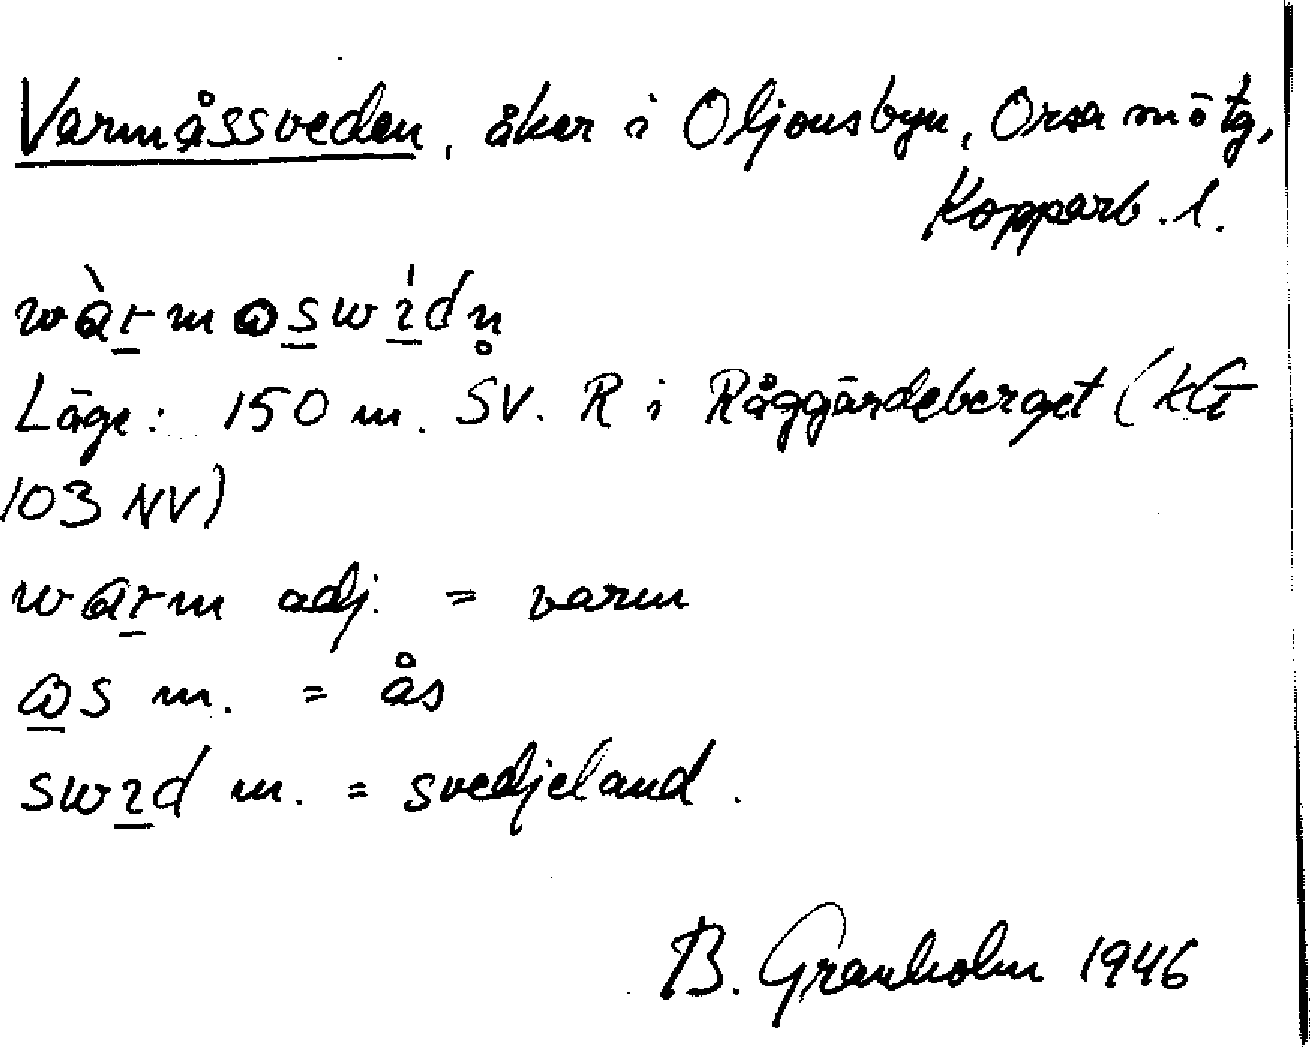 Varmåssveden, åker i Oljonsbyn, Orsa mötg,
Kopparb. l.
wàr̲mωs̲wı̲́dn̥
Läge: 150 m. SV. R i Råggärdeberget (KG
103 NV)
war̲m adj. = varm
ω̲s m. = ås
swı̲d m. = svedjeland.
B. Granholm 1946